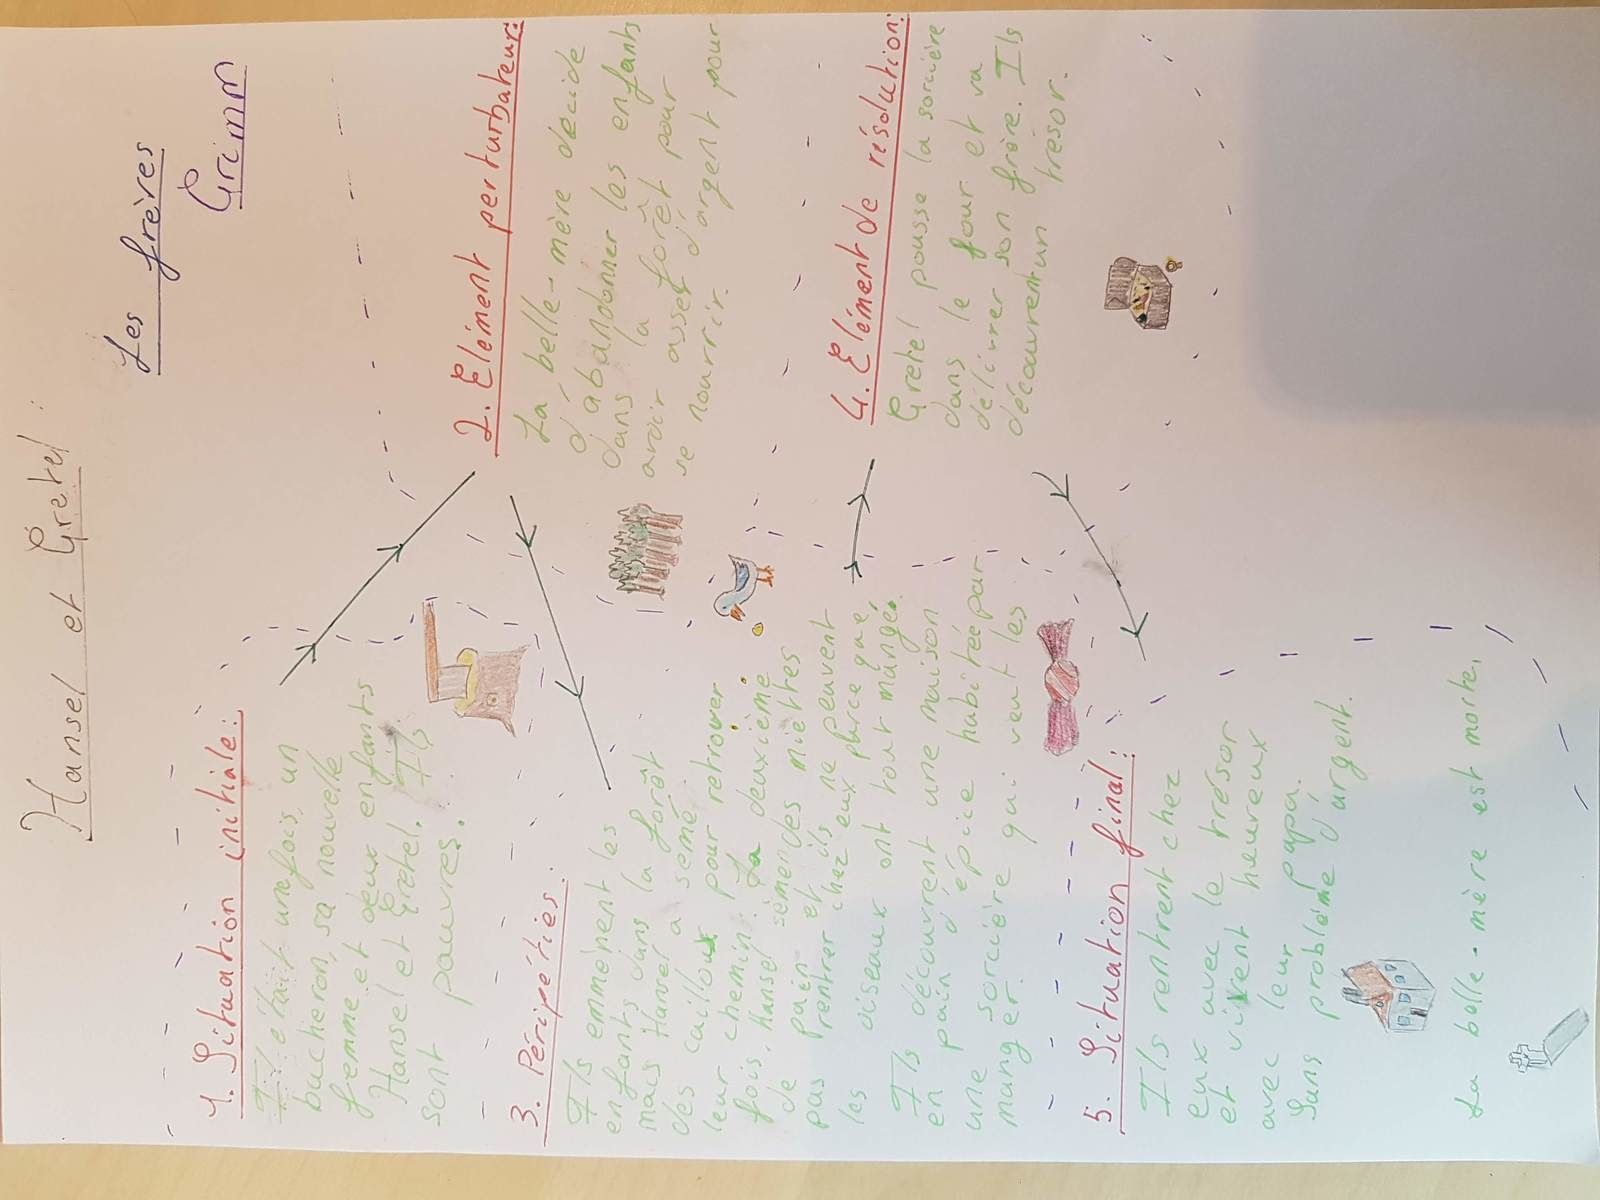 Hansel et Gretel
Les frères
Grimm
1. Situation initiale:
Il était une fois, un
bucheron, sa nouvelle
femme et deux enfants
Hansel et Gretel. Ils
sont pauvres.
2. Elément perturbateur:
La belle-mère décide
d'abandonner les enfants
dans la forêt pour
avoir assez d'argent pour
se nourrir.
3. Péripéties:
Ils emmènent les
enfants dans la forêt
mais Hansel a semé
des cailloux pour retrouver
leur chemin. La deuxième
fois, Hansel sème des miettes
de pain et ils ne peuvent
pas rentrer chez eux parce que
les oiseaux ont tout mangé.
Ils découvrent une maison
en pain d'épice habitée par
une sorcière qui veut les
manger.
4. Elément de résolution:
Gretel pousse la sorcière
dans le four et va
délivrer son frère. Ils
découvrent un trésor.
5. Situation final:
Ils rentrent chez
eux avec le trésor
et vivent heureux
avec leur papa.
Sans problème d'argent.
La belle-mère est morte.